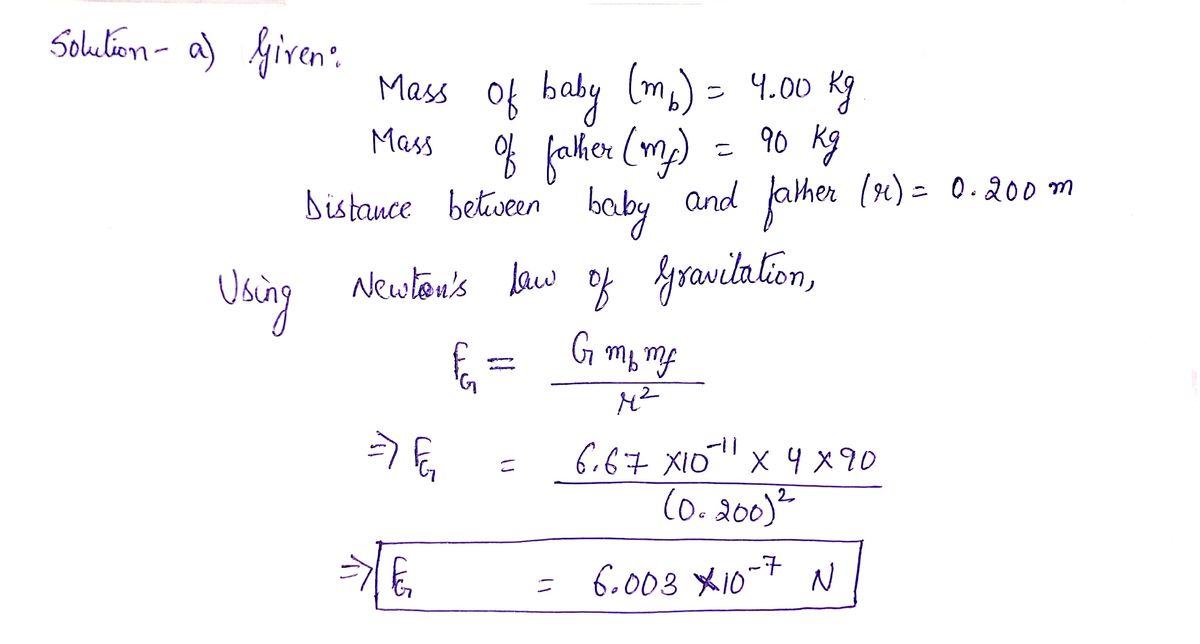 Solution - a) Given:
Mass of baby (m_b) = 4.00 Kg
Mass of father (m_f) = 90 Kg
Distance between baby and father (r) = 0.200 m
Using Newton's Law of Gravitation,
F_G = G m_b m_f / r²
⇒ F_G = 6.67 × 10⁻¹¹ × 4 × 90 / (0.200)²
⇒ F_G = 6.003 × 10⁻⁷ N